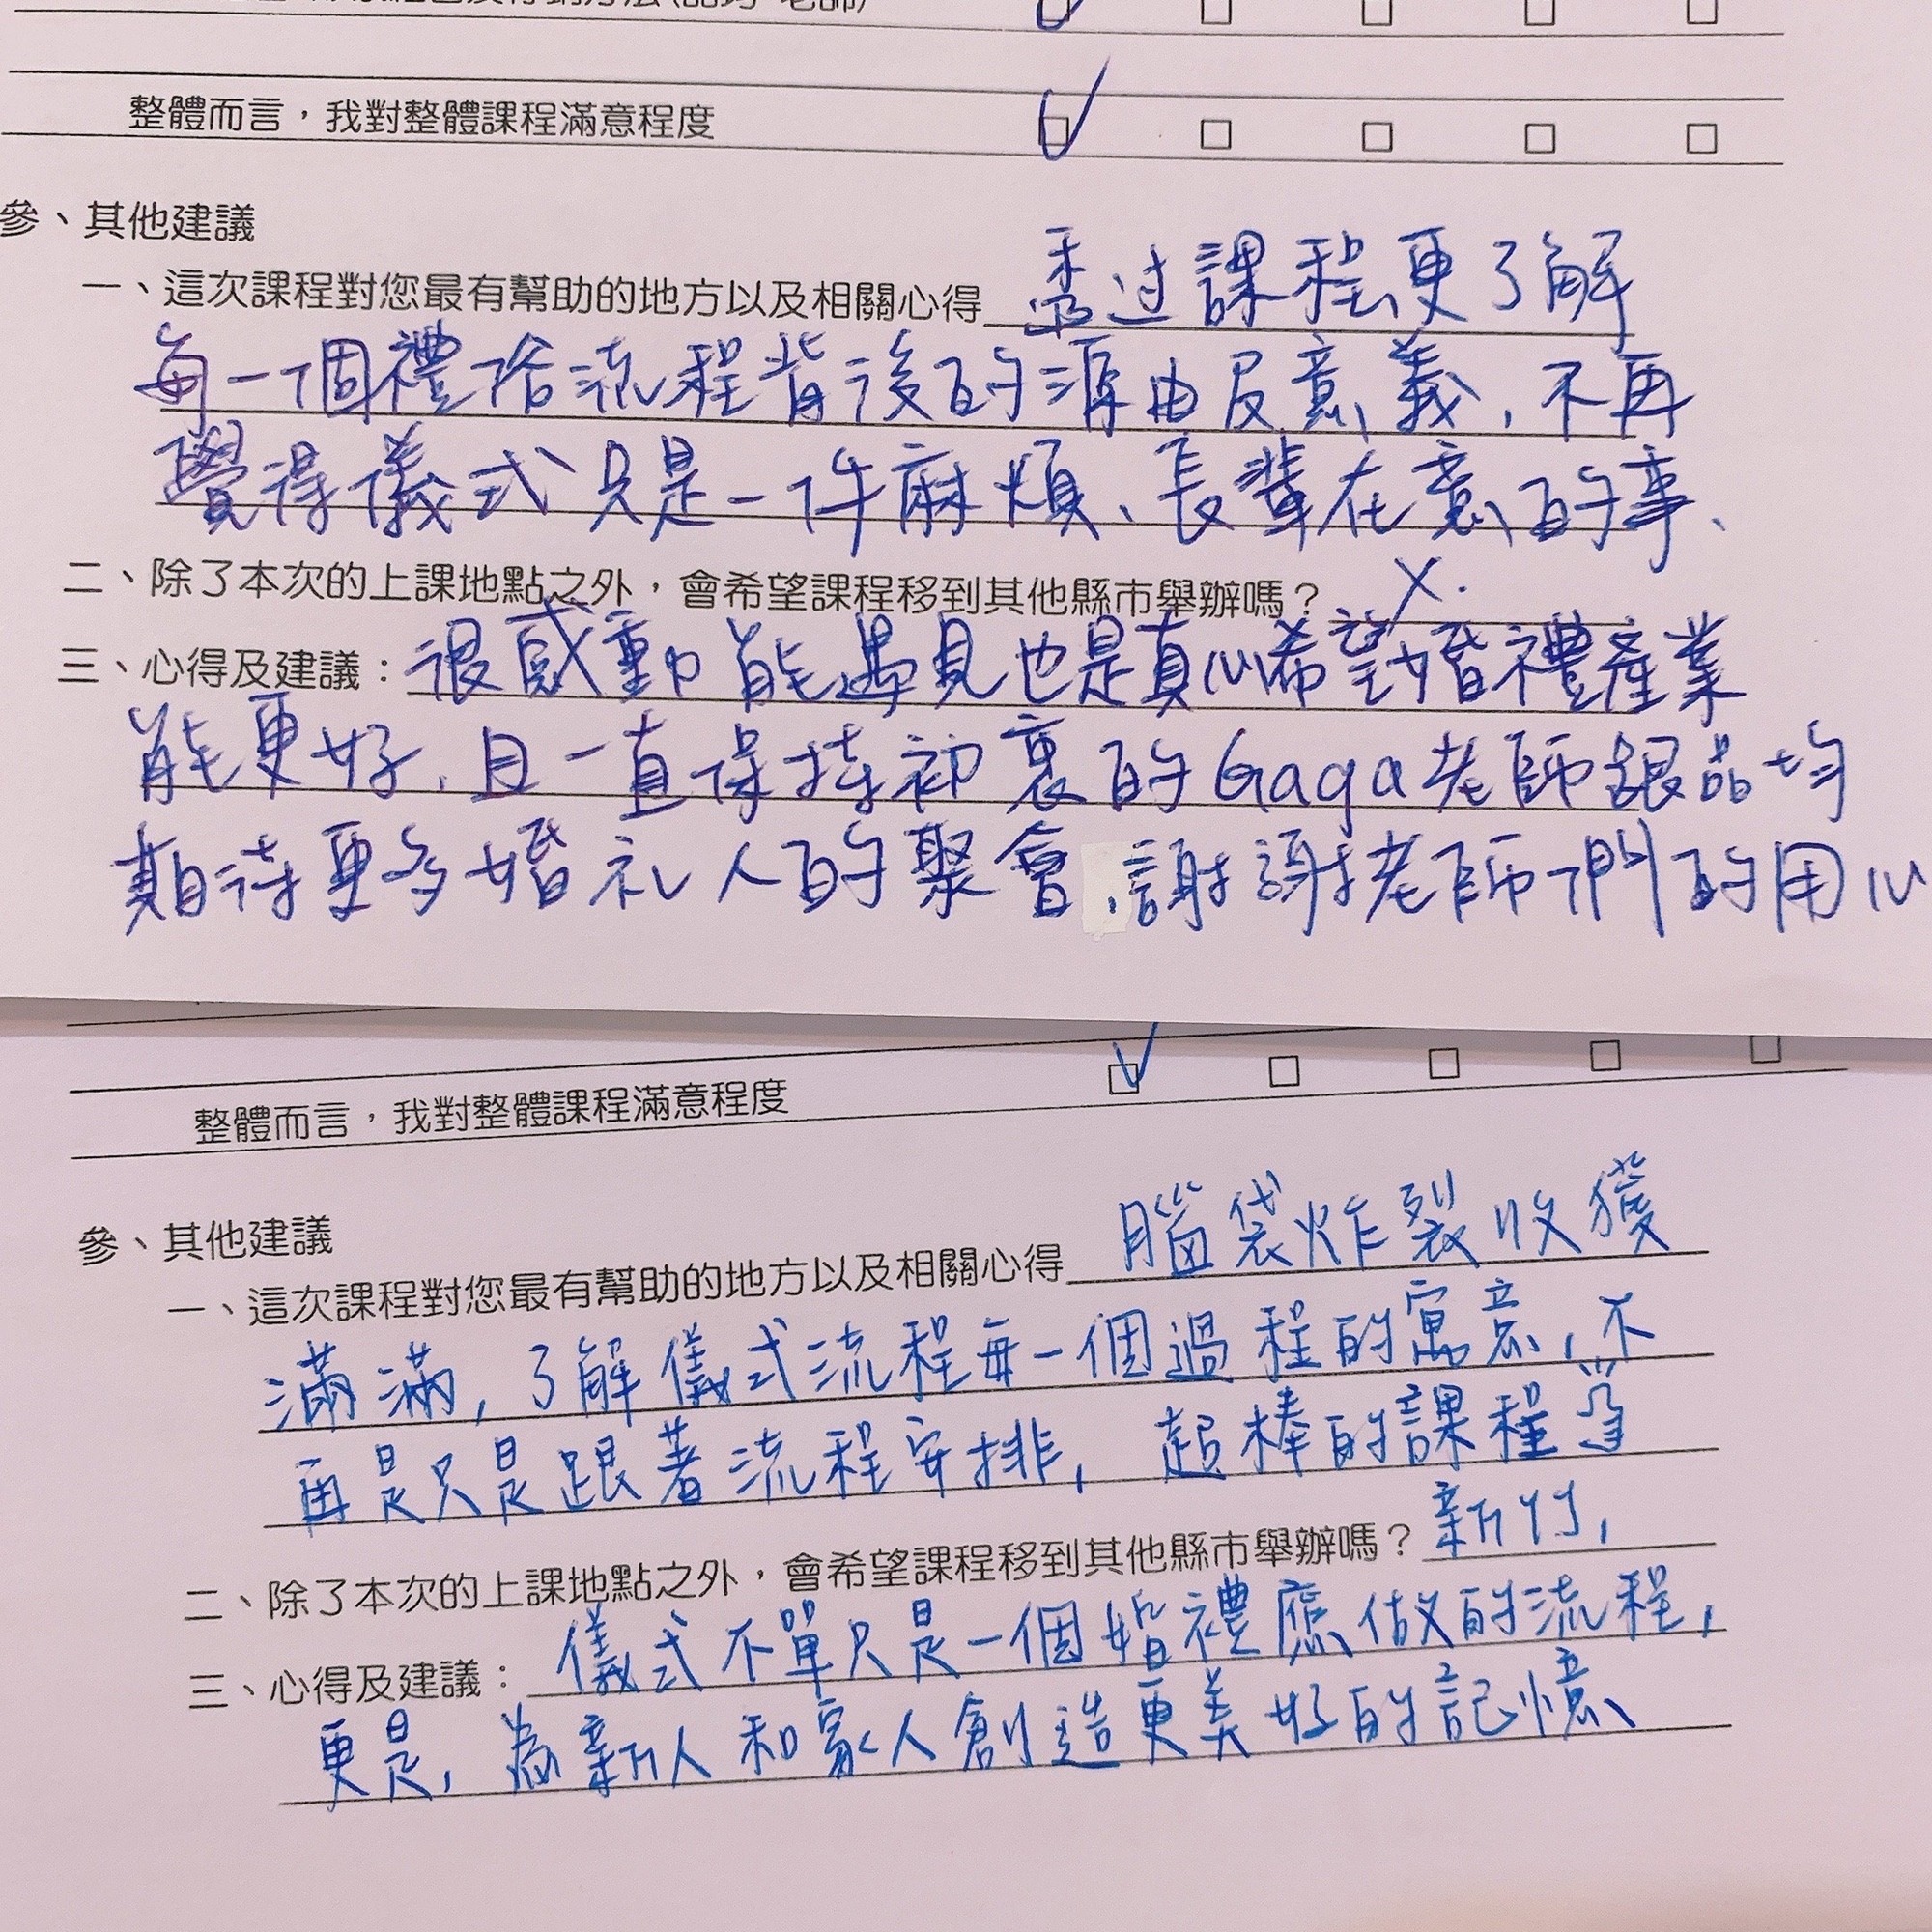 整體而言，我對整體課程滿意程度
參、其他建議
一、這次課程對您最有幫助的地方以及相關心得 透过課程更了解
每一個禮俗流程背後的源由及意義，不再
覺得儀式只是一件麻煩、長輩在意的事、
二、除了本次的上課地點之外，會希望課程移到其他縣市舉辦嗎？ X.
三、心得及建議：很感動能遇見也是真心希望婚禮產業
能更好，且一直保持初衷的Gaga老師跟品均
期待更多婚礼人的聚會，謝謝老師們的用心
整體而言，我對整體課程滿意程度
參、其他建議
一、這次課程對您最有幫助的地方以及相關心得 腦袋炸裂收獲
滿滿，了解儀式流程每一個過程的寓意，不
再是只是跟著流程安排，超棒的課程
二、除了本次的上課地點之外，會希望課程移到其他縣市舉辦嗎？新竹，
三、心得及建議：儀式不單只是一個婚禮應做的流程，
更是，為新人和家人創造更美好的記憶